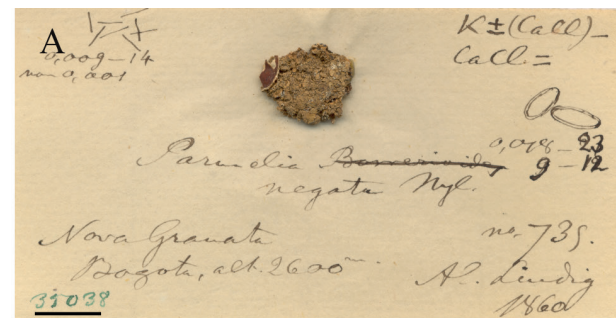 A
0,009–14
0,001
K±(CaCl)–
CaCl =
0,018–23
9–12
Parmelia Bomerioides
negata Nyl.
Nova Granata
Bogota, alt. 2600 m.
no. 735.
Al. Lindig
1860
35038